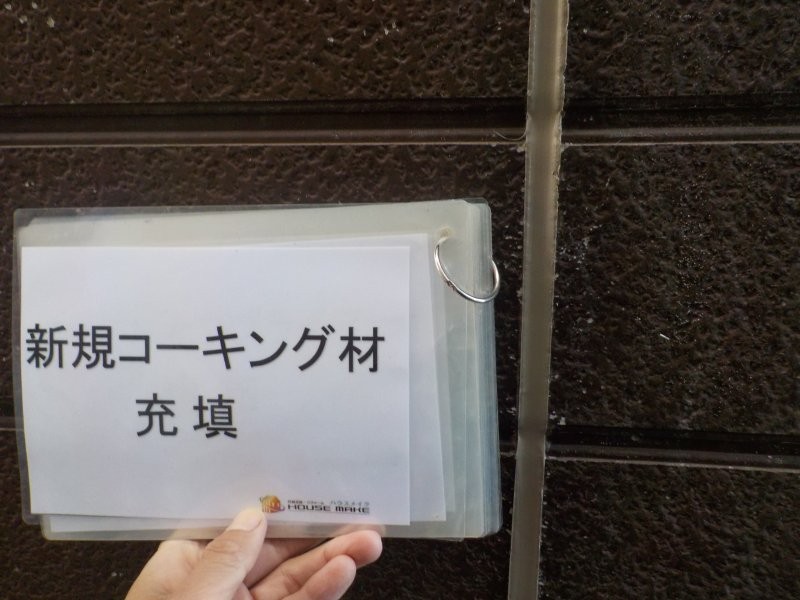 新規コーキング材
充填
ハウスメイク
HOUSE MAKE